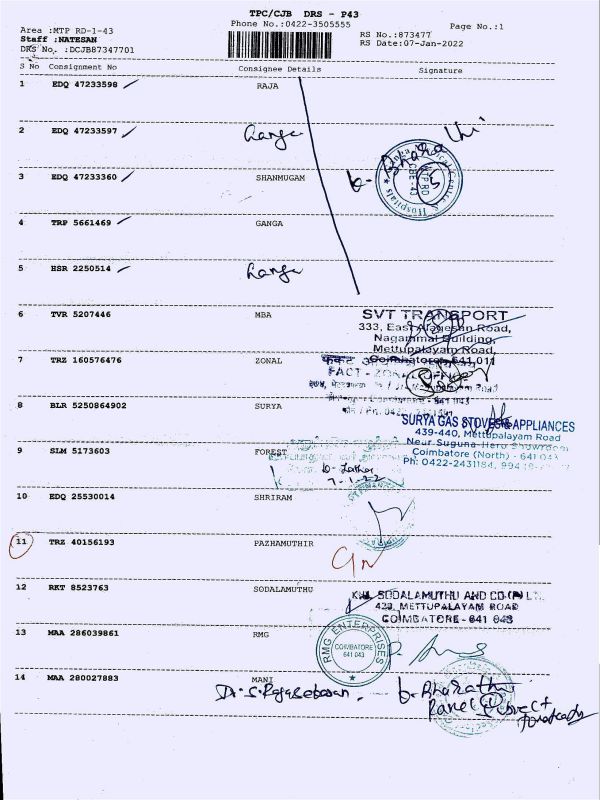 TPC/CJB DRS - P43
Phone No.:0422-3505555
Page No.:1
Area :MTP RD-1-43
Staff :NATESAN
DRS No. :DCJB87347701
RS No.:873477
RS Date:07-Jan-2022
S No Consignment No Consignee Details Signature
1 EDQ 47233598 RAJA
2 EDQ 47233597 Ganga
3 EDQ 47233360 SHANMUGAM
4 TRP 5661469 GANGA
5 HSR 2250514 Ganga
6 TVR 5207446 MBA
SVT TRANSPORT
333, East Alagesan Road,
Nagammal Building,
Mettupalayam Road,
Coimbatore 641 011
7 TRZ 160576476 ZONAL
FACT - ZONAL OFFICE
8 BLR 5250864902 SURYA
SURYA GAS STOVES & APPLIANCES
439-440, Mettupalayam Road
Near Suguna Hero Showroom
Coimbatore (North) - 641 043
Ph: 0422-2431184,
9 SLM 5173603 FOREST
7-1-22
10 EDQ 25530014 SHRIRAM
11 TRZ 40156193 PAZHAMUTHIR
12 RKT 8523763 SODALAMUTHU
SODALAMUTHU AND CO (P) LT
METTUPALAYAM ROAD
COIMBATORE - 641 043
13 MAA 286039861 RMG
RMG ENTERPRISES
COIMBATORE
641 043
14 MAA 280027883 MANI
Dr. S. Rajasebasan
b. Bharathi